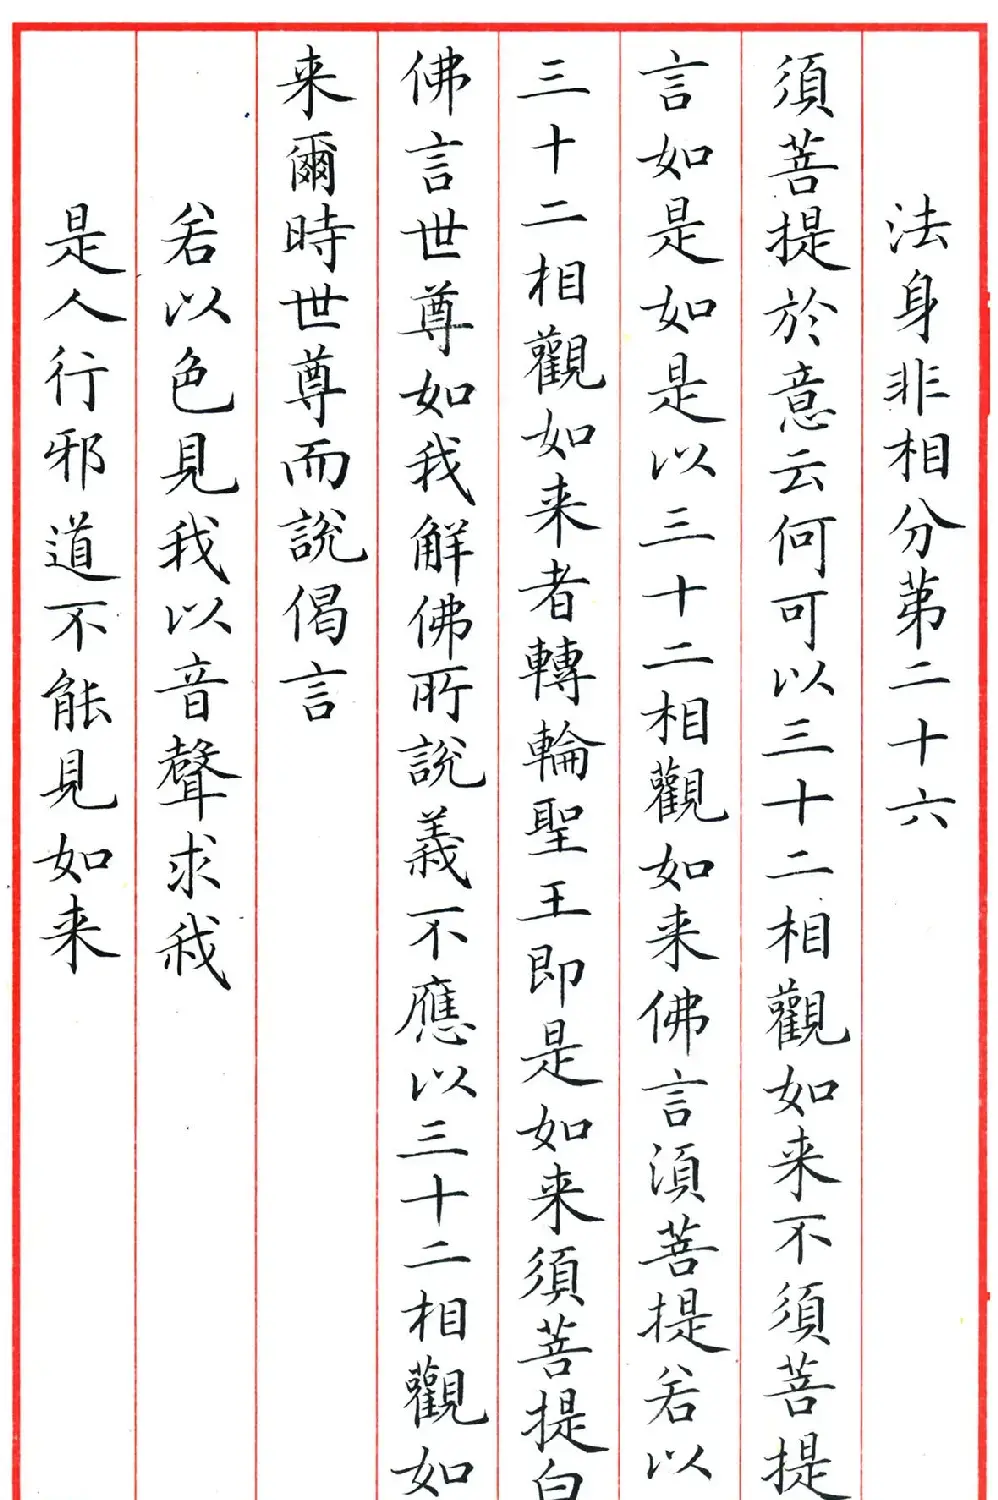 法身非相分第二十六
須菩提於意云何可以三十二相觀如来不須菩提
言如是如是以三十二相觀如来佛言須菩提若以
三十二相觀如来者轉輪聖王即是如来須菩提白
佛言世尊如我解佛所說義不應以三十二相觀如
来爾時世尊而說偈言
若以色見我以音聲求我
是人行邪道不能見如来